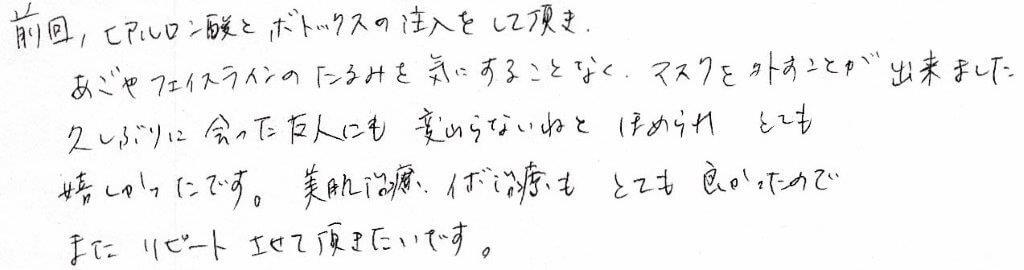 前回,ヒアルロン酸とボトックスの注入をして頂き.
あごやフェイスラインのたるみを気にすることなく.マスクを外すことが出来ました
久しぶりに会った友人にも変わらないねとほめられとても
嬉しかったです。美肌治療.イボ治療もとても良かったので
またリピートさせて頂きたいです。